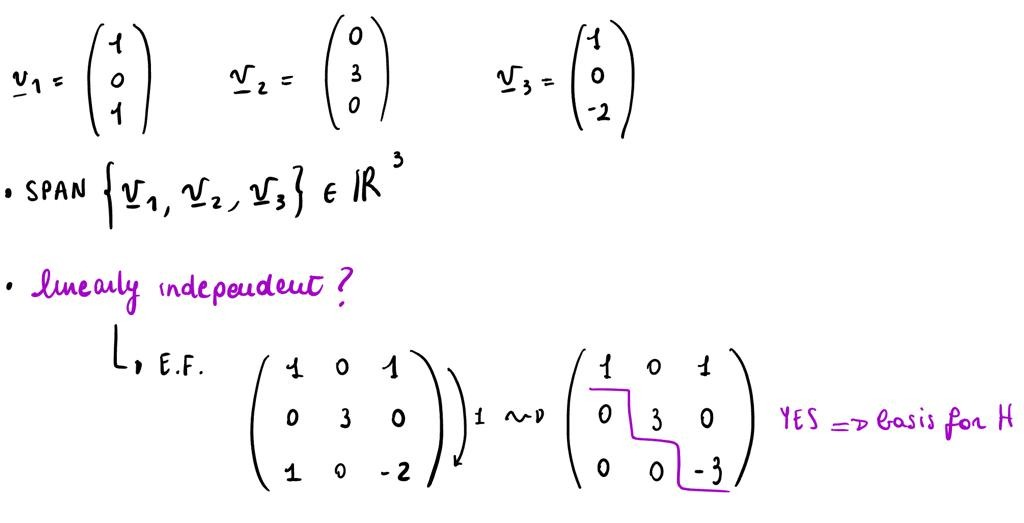 v1 = (1 0 1) v2 = (0 3 0) v3 = (1 0 -2)
• SPAN {v1, v2, v3} ∈ ℝ³
• linearly independent?
↳ E.F. (1 0 1 0 3 0 1 0 -2) 1 ~> (1 0 1 0 3 0 0 0 -3) YES => basis for H